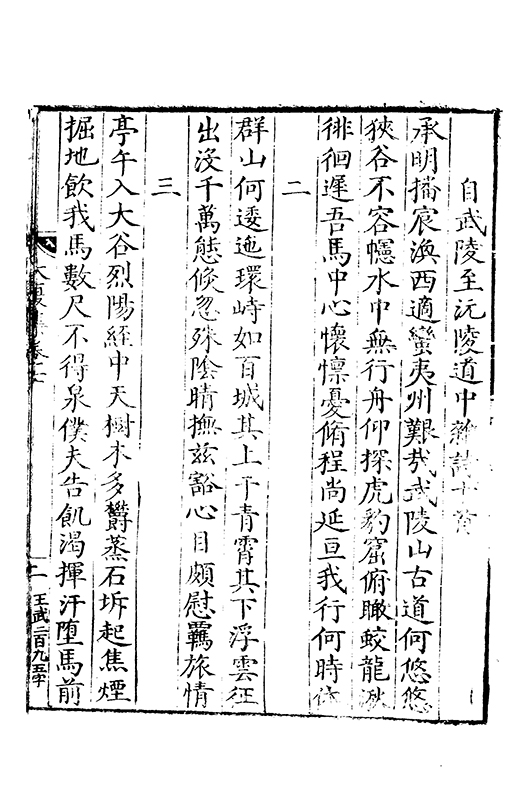 自武陵至沅陵道中雜詩十首
承明播宸渙西適蠻夷州艱哉武陵山古道何悠悠
狹谷不容幰水中無行舟仰探虎豹窟俯瞰蛟龍湫
徘徊遲吾馬中心懷懍憂脩程尚延亘我行何時休
二
群山何逶迤環峙如百城其上干青霄其下浮雲征
出沒千萬態倏忽殊陰晴撫茲豁心目頗慰羈旅情
三
亭午入大谷烈陽經中天樹木多欝蒸石坼起焦煙
掘地飲我馬數尺不得泉僕夫告飢渴揮汗墮馬前
一
王武二百九五字